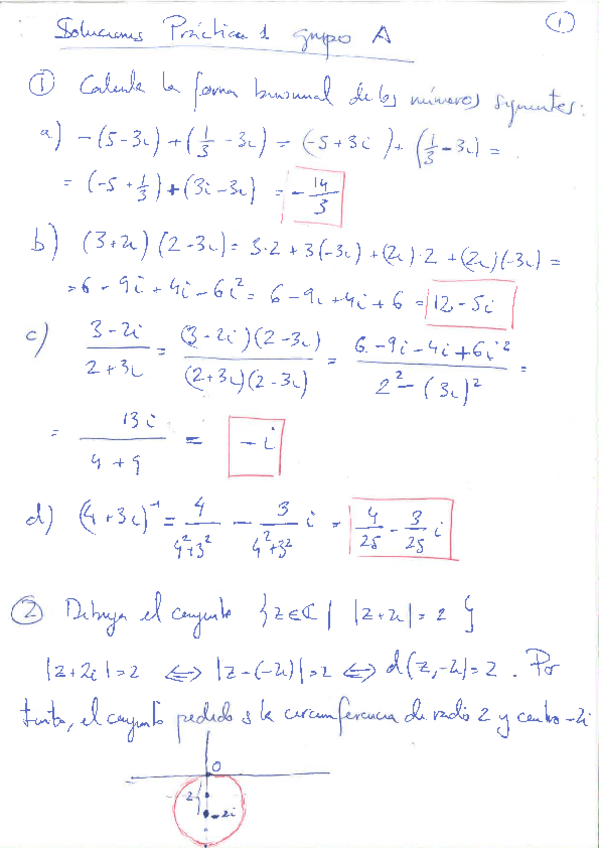 Soluciones Práctica 1 grupo A
1
① Calcula la forma binomial de los números siguientes:
a) -(5-3i)+(1/3 -3i) = (-5+3i)+(1/3-3i) =
= (-5+1/3)+(3i-3i) = -14/3
b) (3+2i)(2-3i) = 3·2+3(-3i)+(2i)·2+(2i)(-3i) =
= 6-9i+4i-6i² = 6-9i+4i+6 = 12-5i
c) 3-2i/2+3i = (3-2i)(2-3i)/(2+3i)(2-3i) = 6-9i-4i+6i²/2²-(3i)² =
= 13i/4+9 = -i
d) (4+3i)⁻¹ = 4/4²+3² - 3/4²+3² i = 4/25 - 3/25 i
② Dibuja el conjunto {z∈ℂ | |z+2i|=2}
|z+2i|=2 ⟺ |z-(-2i)|=2 ⟺ d(z,-2i)=2. Por
tanto, el conjunto pedido es la circunferencia de radio 2 y centro -2i
0
2
-2i